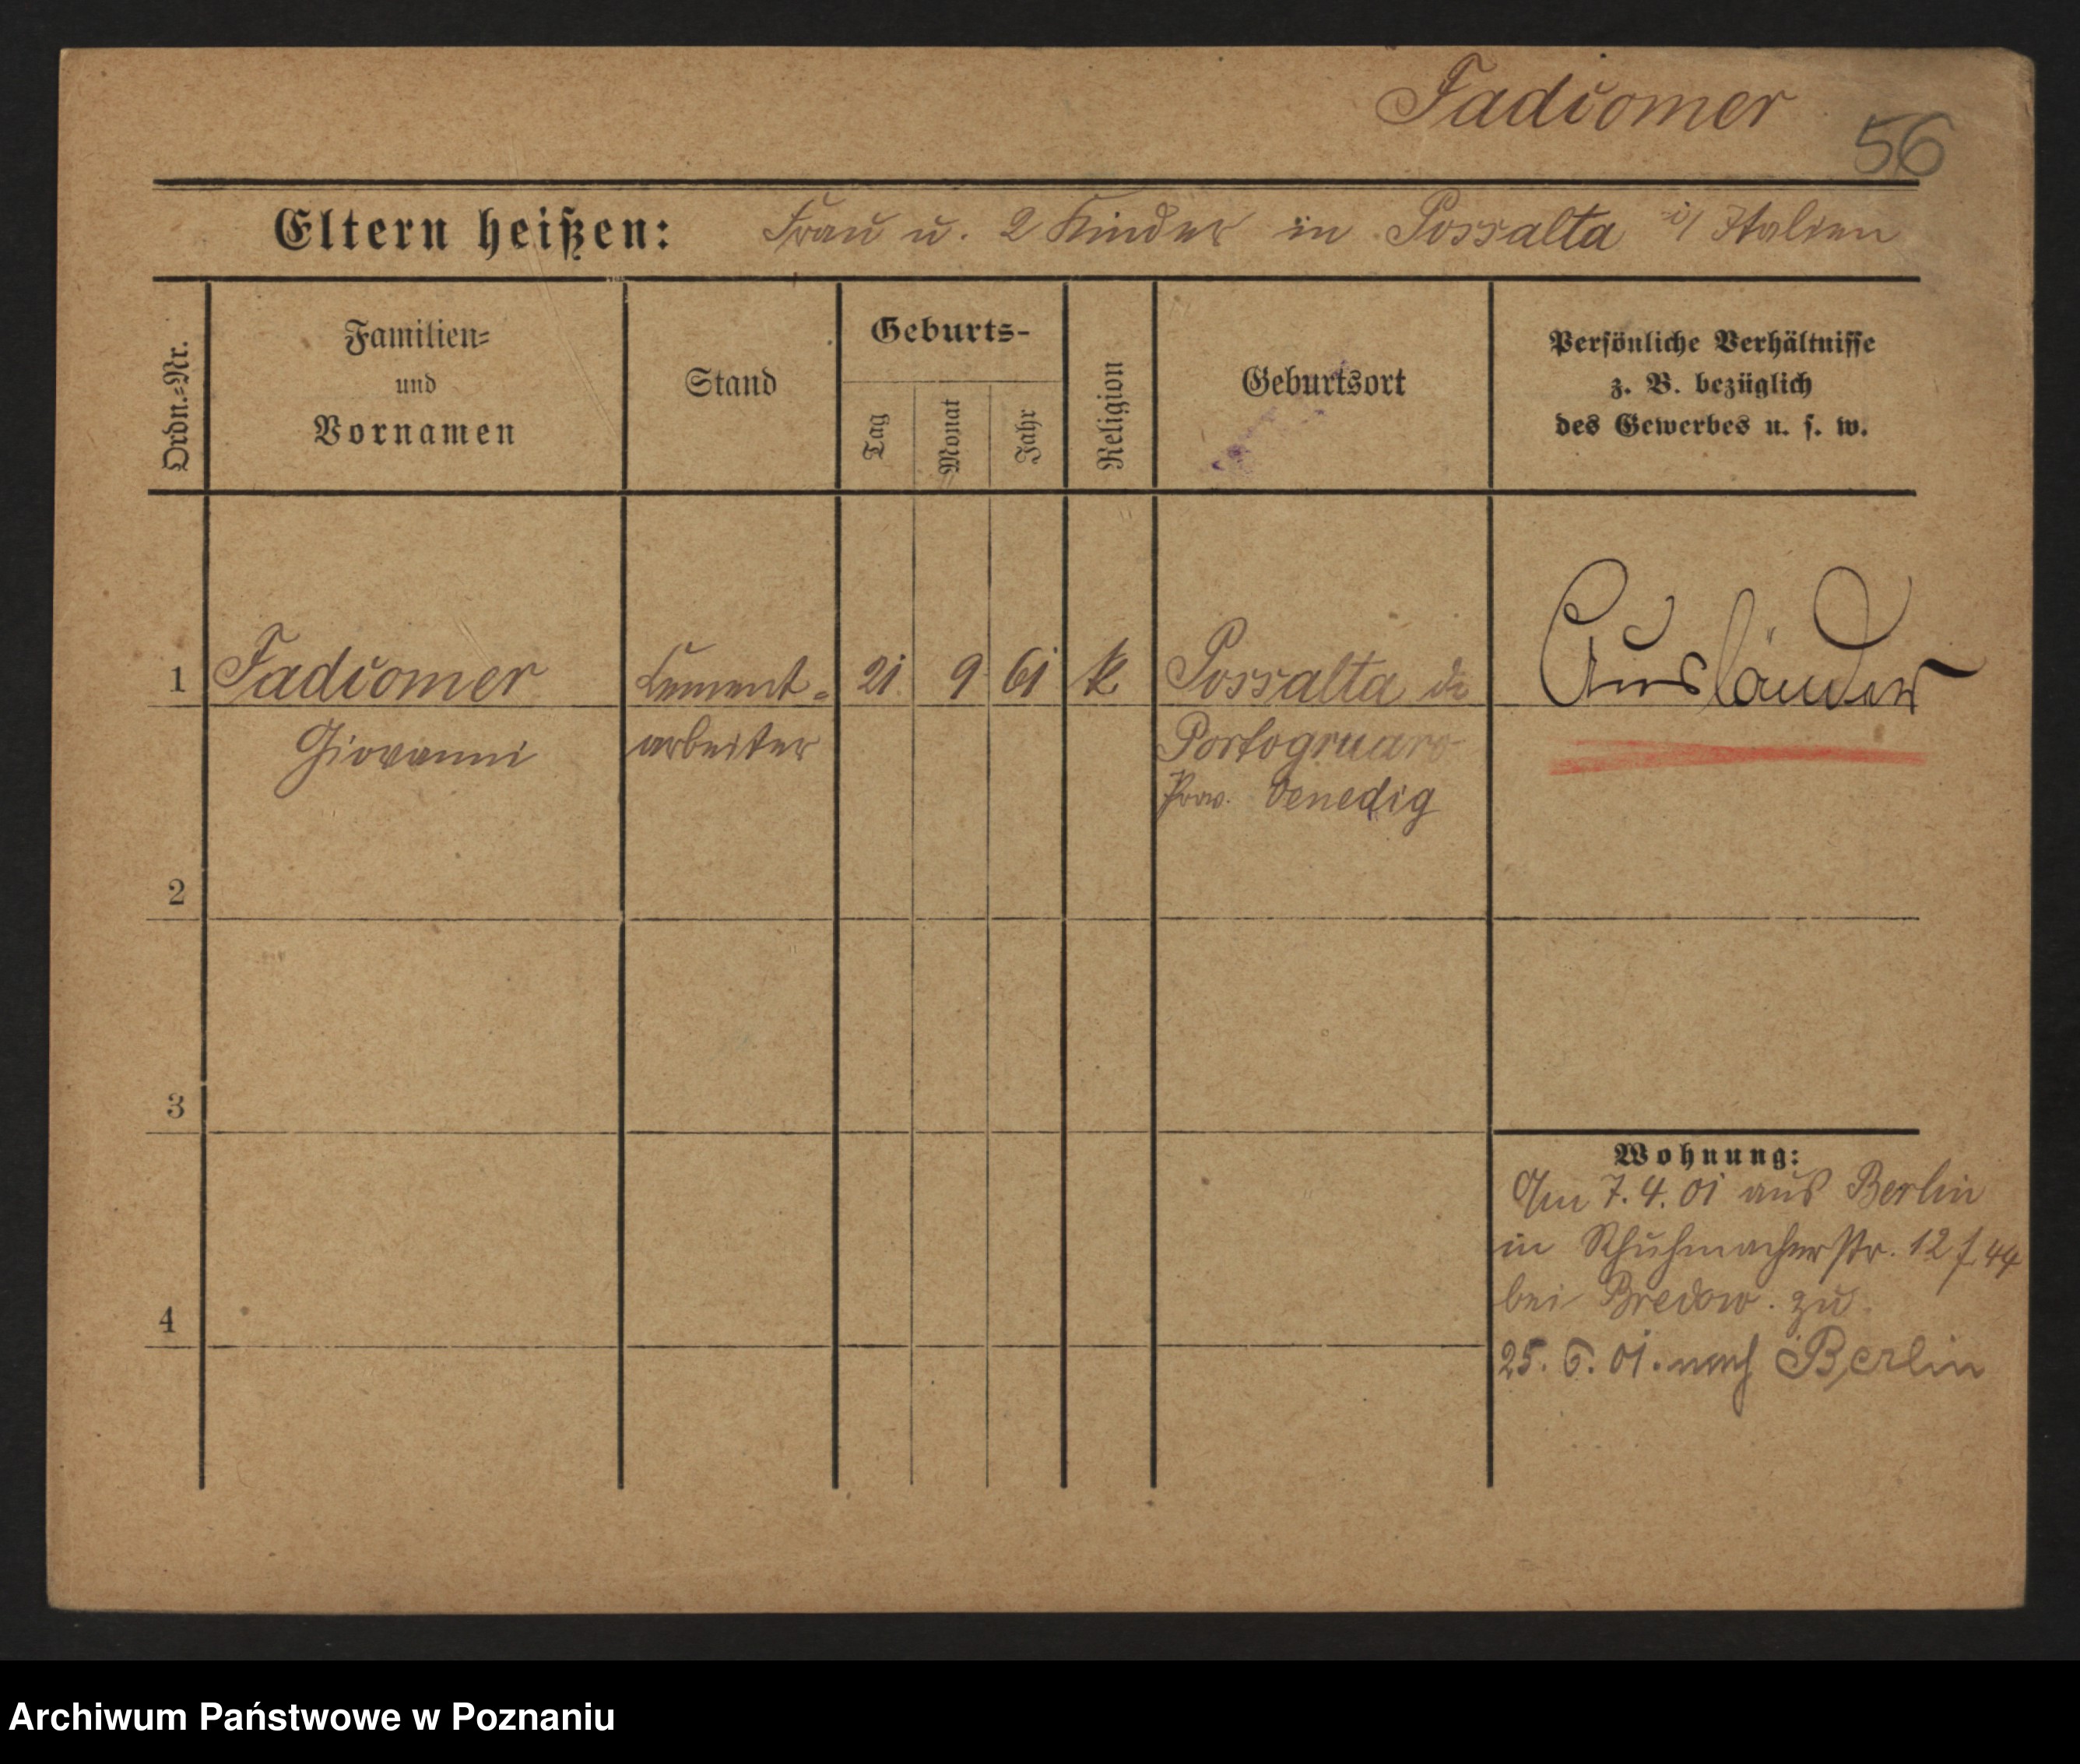 Fadiomer
56
Eltern heißen: Frau u. 2 Kinder in Fossalta i/ Italien
Ordn.-Nr.
Familien-
und
Vornamen
Stand
Geburts-
Tag
Monat
Jahr
Religion
Geburtsort
Persönliche Verhältnisse
z. B. bezüglich
des Gewerbes u. s. w.
1 Fadiomer Cement- 21 9 61 k Fossalta di Ausländer
Giovanni arbeiter Portogruaro
Prov. Venedig
2
3
Wohnung:
Am 7. 4. 01 aus Berlin
in Schuhmacherstr. 12 f 44
bei Bredow. zu
4
25. 6. 01. nach Berlin
Archiwum Państwowe w Poznaniu